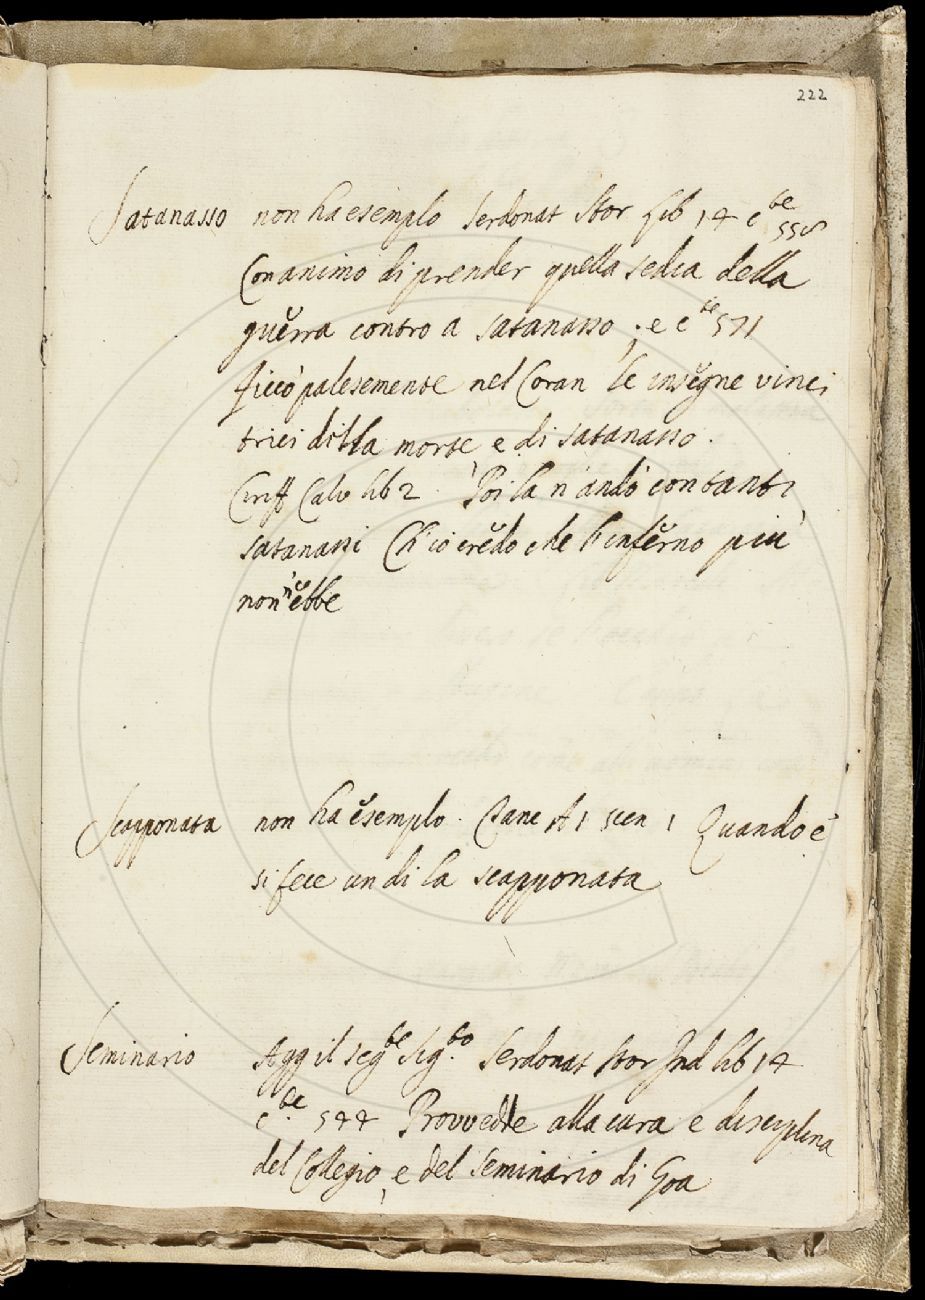 222
Satanasso non ha esemplo Serdonat Stor lib 14 c.te 558
Con animo di prender quella sedia della
guerra contro a satanasso; e c.te 571
ficcò palesemente nel Coran le insegne vinci
trici della morte e di satanasso.
Ciriff Calv lib 2. Poi la n'andò con tanti
satanassi Ch'io credo che l'inferno più
non n'ebbe
Scapponata non ha esemplo. At 1 scen 1 Quando e'
si fece un dì la scapponata
Seminario Agg il seg.te sig.to Serdonat Stor Ind lib 14
c.te 544 Provvedde alla cura e disciplina
del Collegio, e del Seminario di Goa